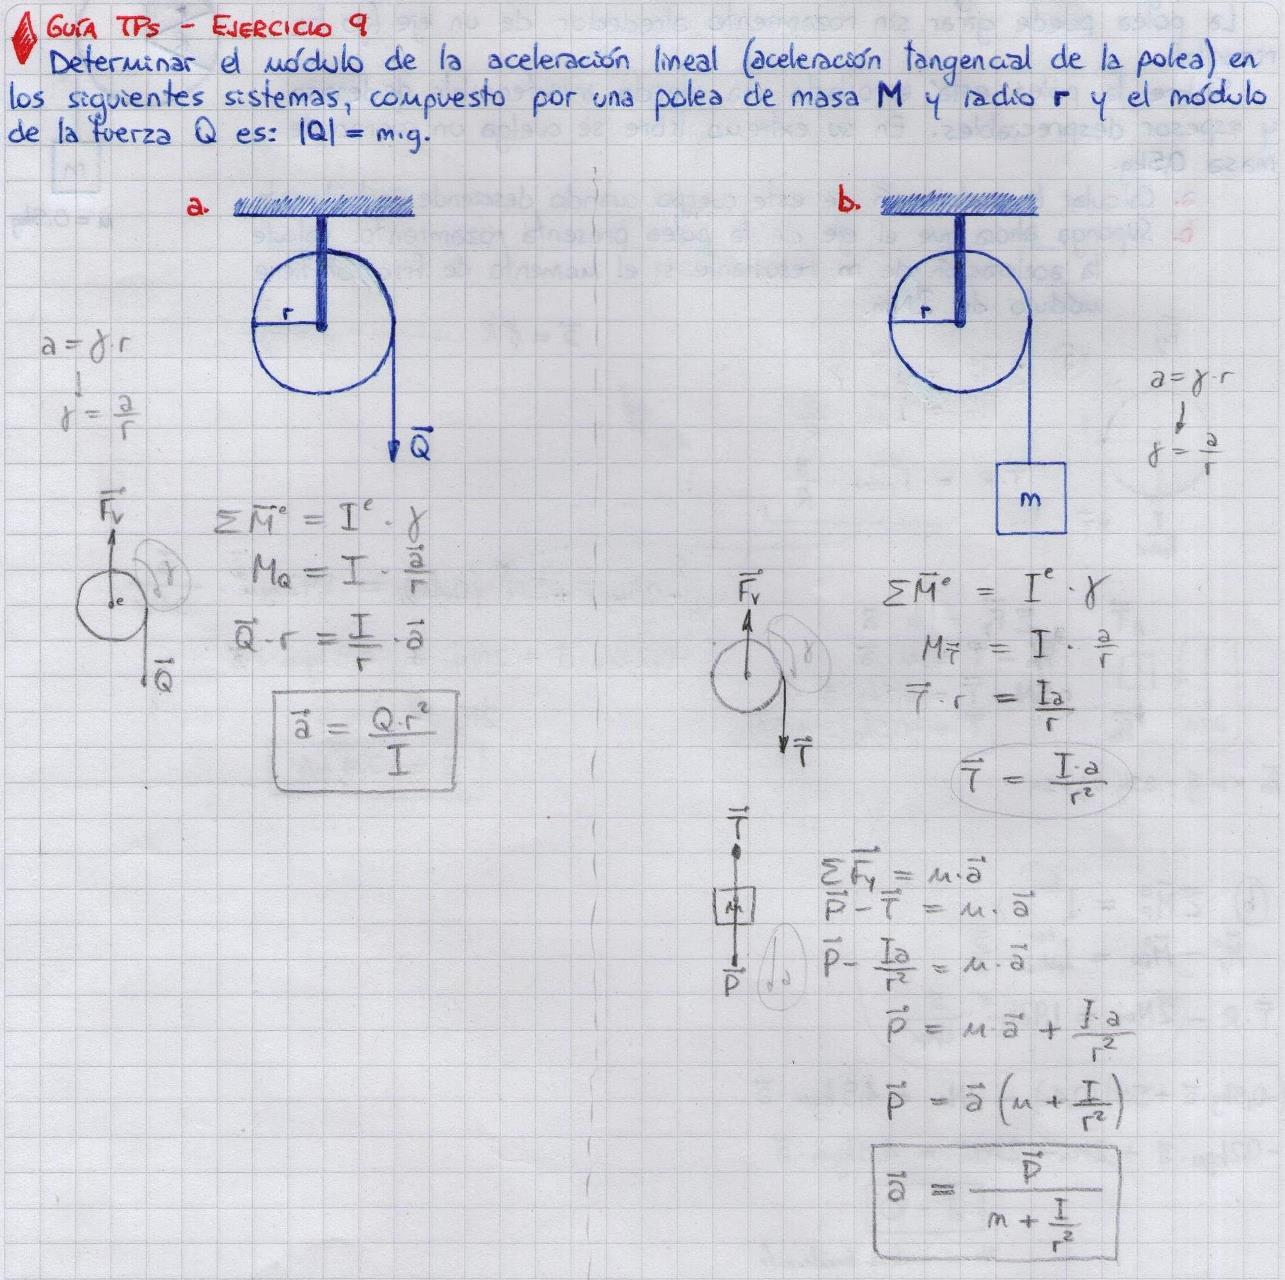 GUÍA TPs - EJERCICIO 9
Determinar el módulo de la aceleración lineal (aceleración tangencial de la polea) en
los siguientes sistemas, compuesto por una polea de masa M y radio r y el módulo
de la fuerza Q es: |Q| = m.g.
a.
r
a = γ·r
↓
γ = a/r
Q⃗
F⃗v
e
γ
Q⃗
ΣM⃗ᵉ = Iᵉ · γ
M_Q = I · a⃗/r
Q⃗·r = I/r · a⃗
a⃗ = Q·r²/I
b.
r
a = γ·r
↓
γ = a/r
m
F⃗v
γ
T⃗
ΣM⃗ᵉ = Iᵉ · γ
M_T⃗ = I · a/r
T⃗·r = Ia/r
T⃗ = I·a/r²
T⃗
m
P⃗
a⃗
ΣF⃗y = m·a⃗
P⃗ - T⃗ = m·a⃗
P⃗ - Ia/r² = m·a⃗
P⃗ = m·a⃗ + I·a/r²
P⃗ = a⃗ (m + I/r²)
a⃗ = P⃗/(m + I/r²)